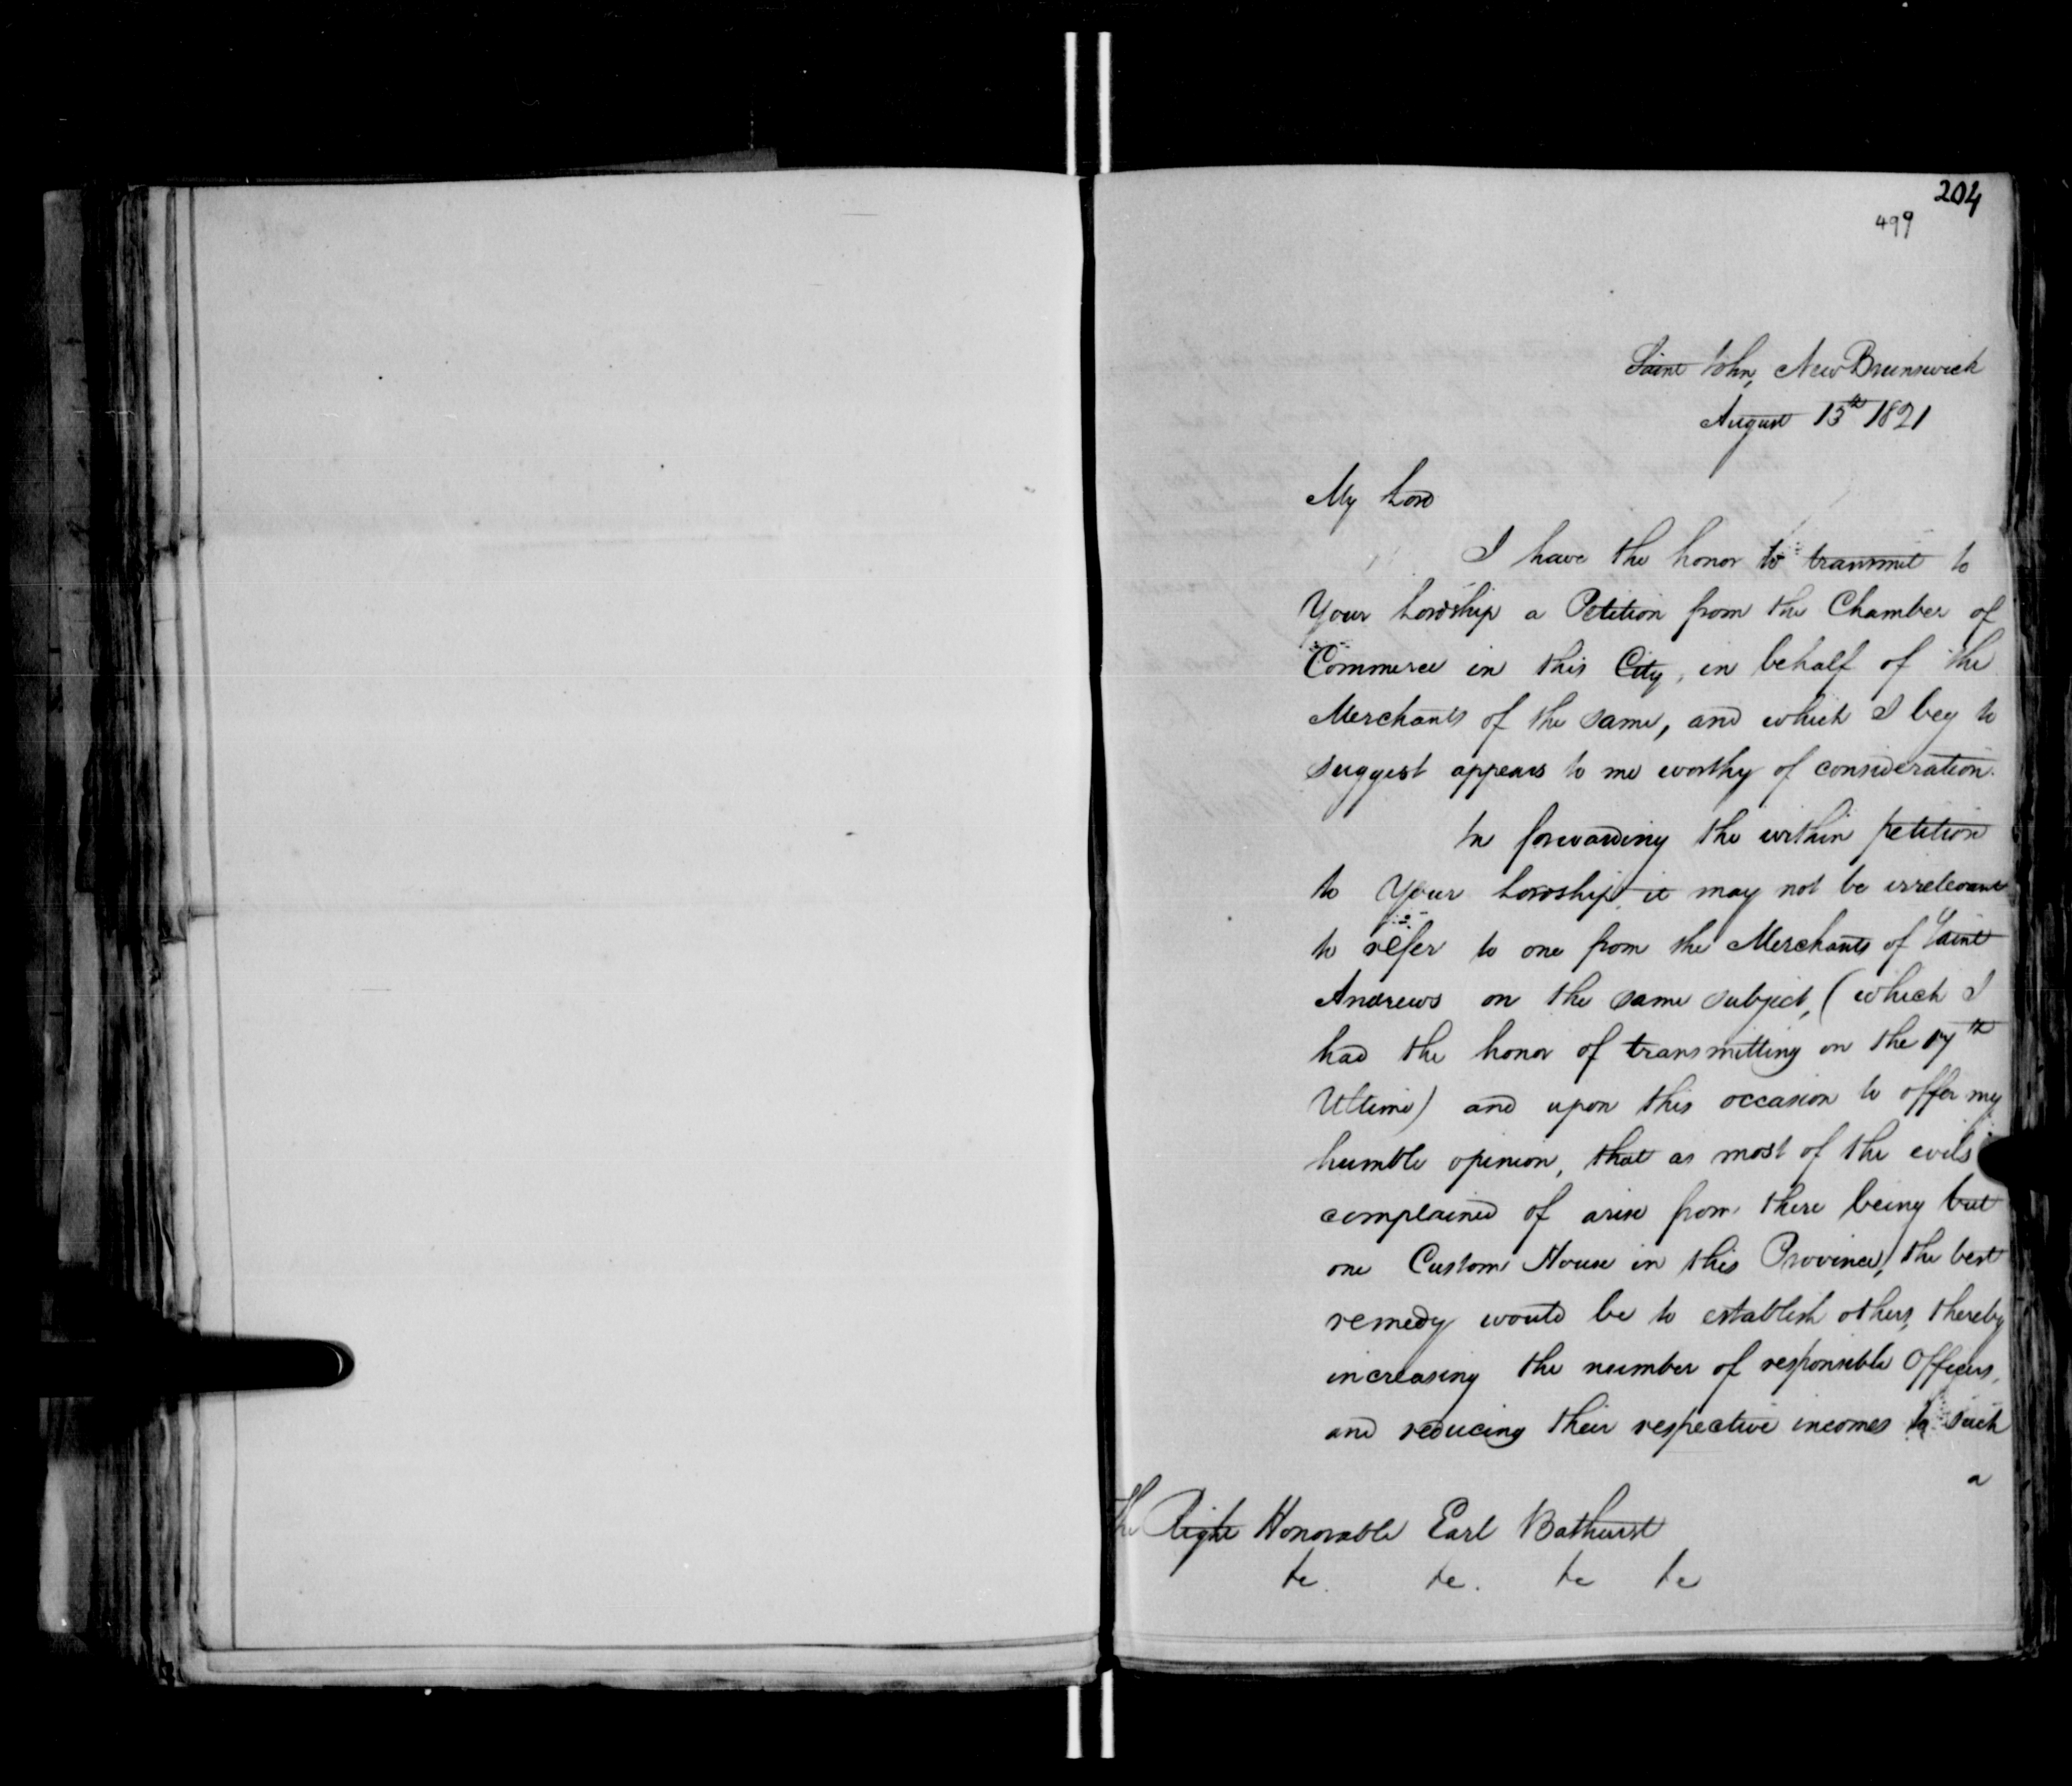 204
499
Saint John, New Brunswick
August 13th 1821
My Lord
I have the honor to transmit to
Your Lordship a Petition from the Chamber of
Commerce in this City, in behalf of the
Merchants of the same, and which I beg to
suggest appears to me worthy of consideration.
In forwarding the within petition
to Your Lordship it may not be irrelevant
to refer to one from the Merchants of Saint
Andrews on the same subject, (which I
had the honor of transmitting on the 17th
Ultimo) and upon this occasion to offer my
humble opinion, that as most of the evils
complained of arise from there being but
one Custom House in this Province, the best
remedy would be to establish others, thereby
increasing the number of responsible Officers,
and reducing their respective incomes to such
a
The Right Honorable Earl Bathurst
&c. &c. &c &c